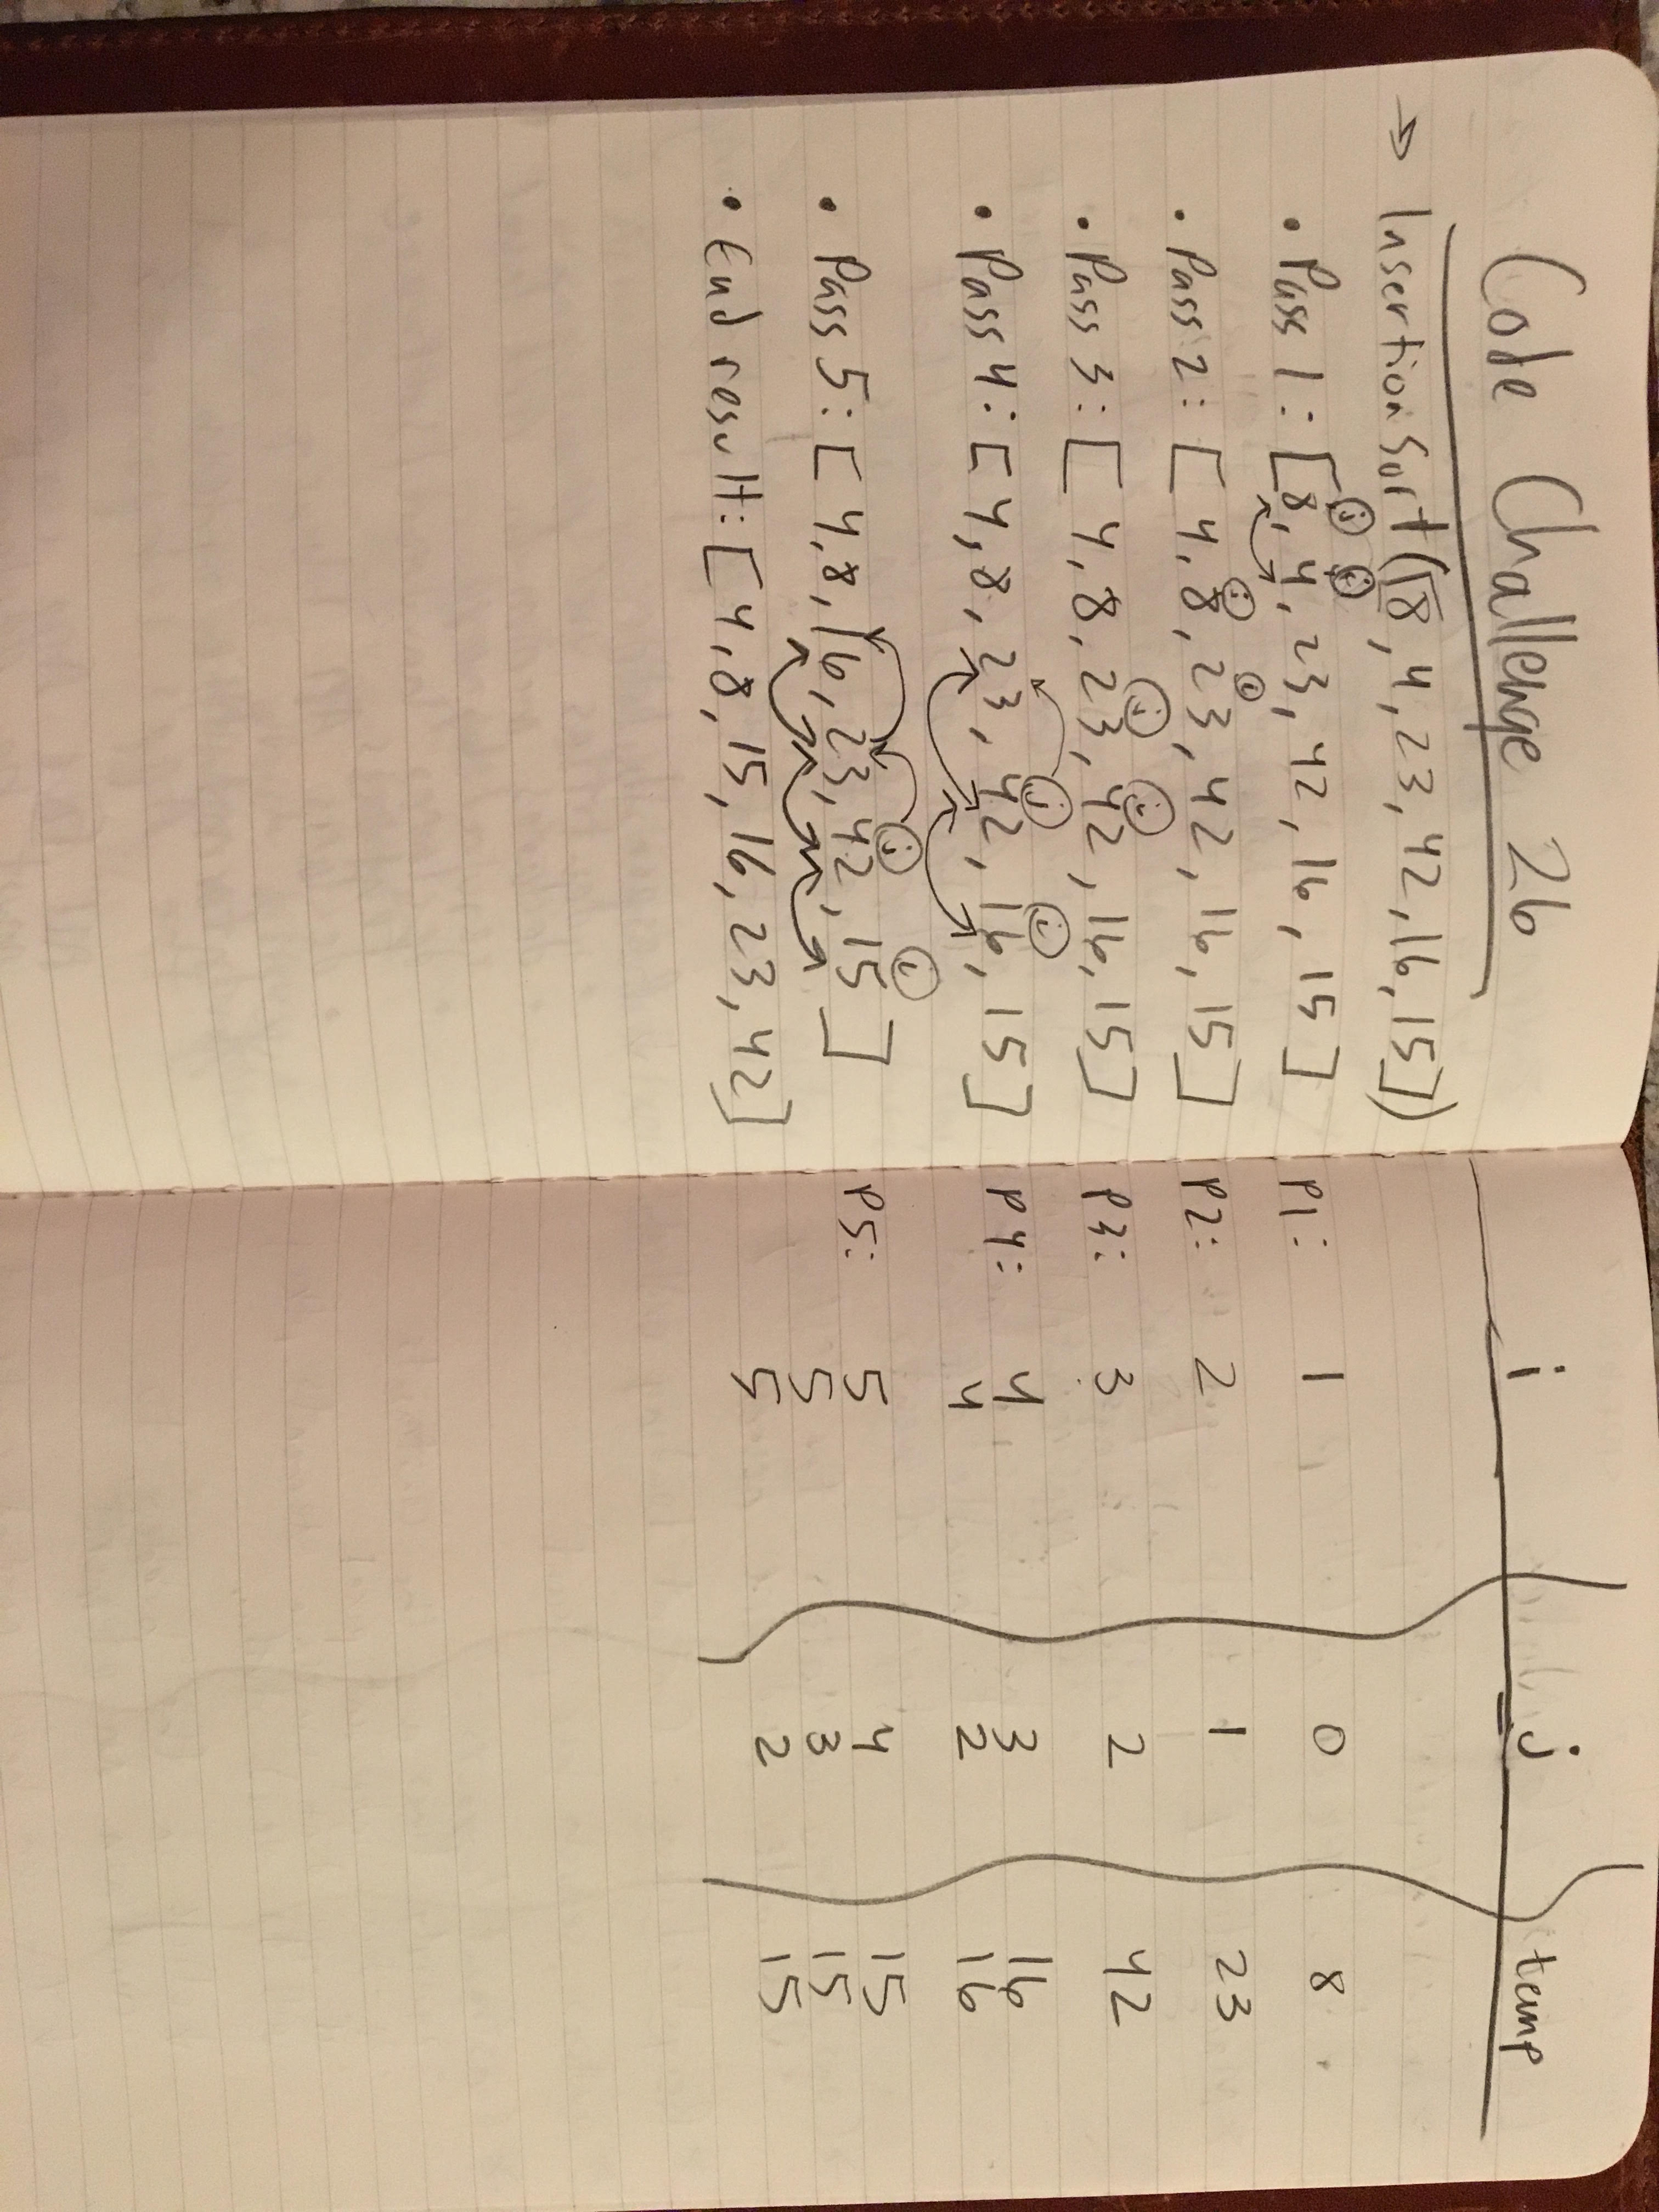 Code Challenge 26
→ InsertionSort([8, 4, 23, 42, 16, 15])
j i
• Pass 1: [8, 4, 23, 42, 16, 15]
j i
• Pass 2: [4, 8, 23, 42, 16, 15]
j i
• Pass 3: [4, 8, 23, 42, 16, 15]
j i
• Pass 4: [4, 8, 23, 42, 16, 15]
j i
• Pass 5: [4, 8, 16, 23, 42, 15]
• End result: [4, 8, 15, 16, 23, 42]
i j temp
P1: 1 0 8
P2: 2 1 23
P3: 3 2 42
P4: 4 3 16
4 2 16
P5: 5 4 15
5 3 15
5 2 15